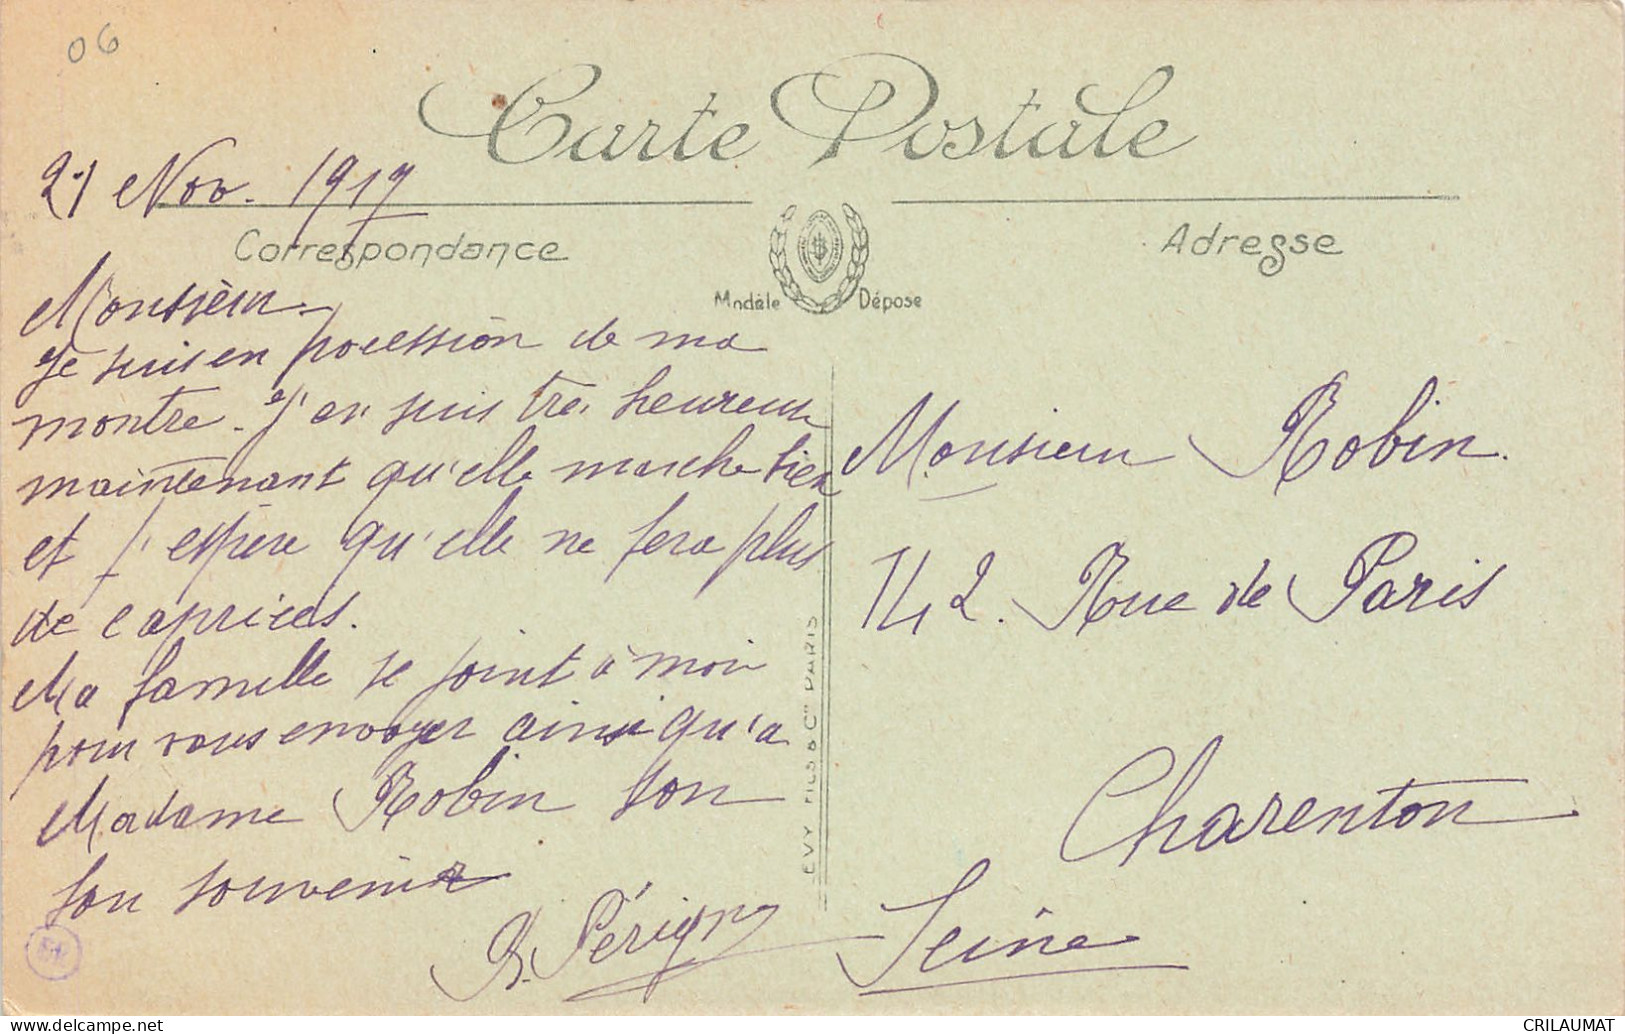 06
Carte Postale
21 Nov. 1919
Correspondance
Adresse
Modèle Déposé
Monsieur
Je suis en pocession de ma
montre. J'en suis très heureux
maintenant qu'elle marche bien
et j'espère qu'elle ne fera plus
de caprices.
Ma famille se joint à moi
pour vous envoyer ainsi qu'a
Madame Robin son
bon souvenir
Périgny
Monsieur Robin.
142. Rue de Paris
Charenton
Seine
LEVY FILS & Cie PARIS
CRILAUMAT